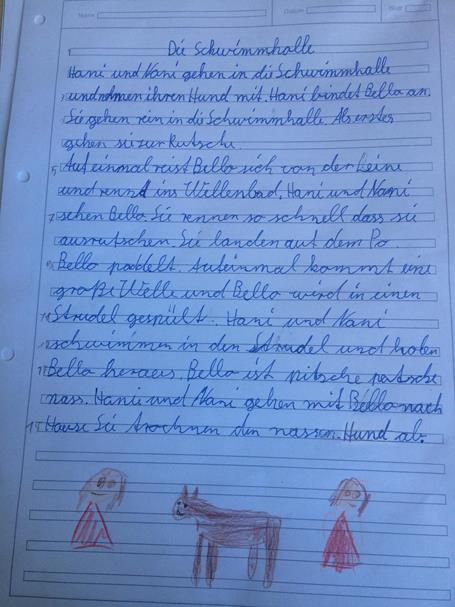 Name
Datum
Blatt
1 Die Schwimmhalle
Hani und Nani gehen in die Schwimmhalle
3 und nehmen ihren Hund mit. Hani bindet Bella an.
Sie gehen rein in die Schwimmhalle. Als erstes
gehen sie zur Rutsche.
5 Auf einmal reist Bello sich von der Leine
und rennt ins Wellenbad. Hani und Nani
7 sehen Bello. Sie rennen so schnell dass sie
ausrutschen. Sie landen auf dem Po.
9 Bello paddelt. Aufeinmal kommt eine
große Welle und Bello wird in einen
11 Strudel gespült. Hani und Nani
schwimmen in den Strudel und holen
Bello heraus. Bello ist pitsche patsche
nass. Hani und Nani gehen mit Bello nach
15 Hause Sie trochnen den nassen Hund ab.